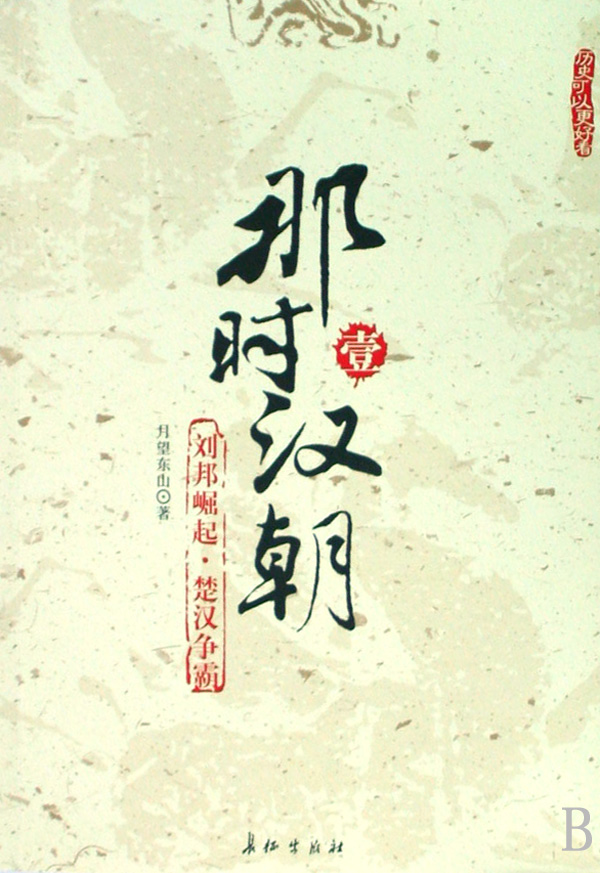 历史可以更好看
那时汉朝
壹
刘邦崛起·楚汉争霸
月望东山⊙著
长征出版社
B